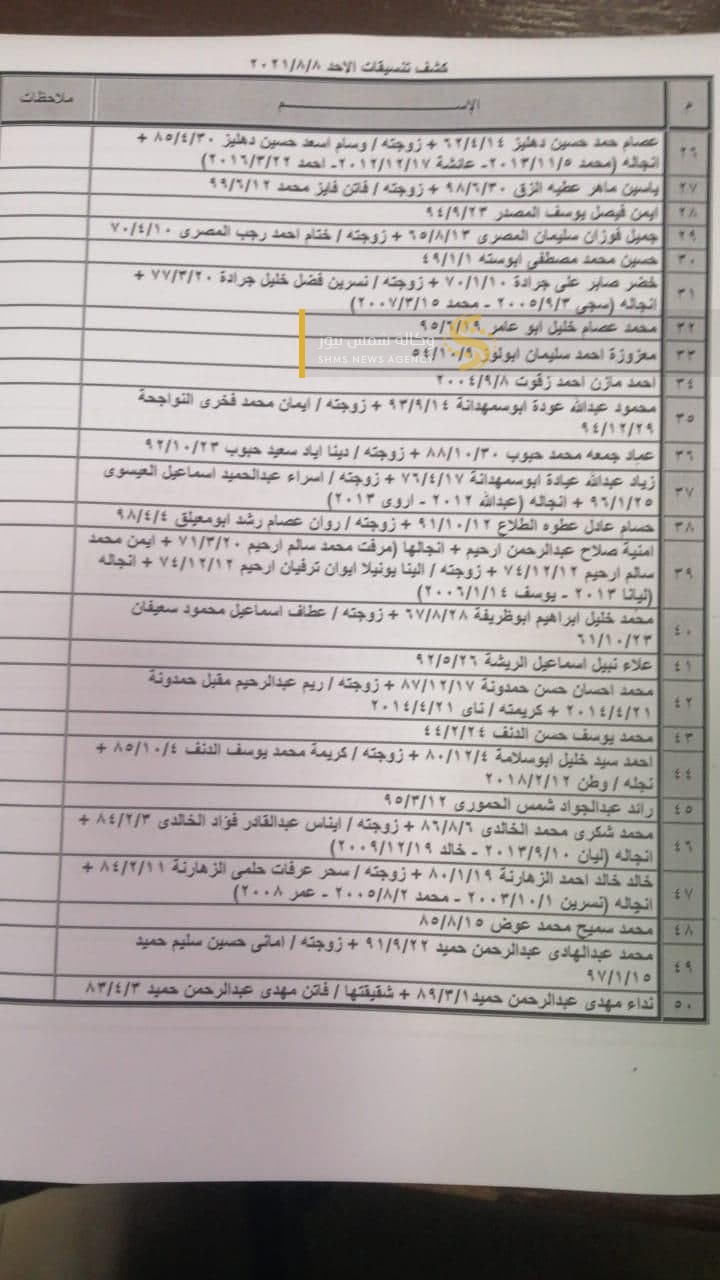 كشف تنسيقات الاحد ٢٠٢١/٨/٨
م الإســـم ملاحظات
٢٦ عصام حمد حسين دهليز ٦٢/٤/١٤ + زوجته / وسام اسعد حسين دهليز ٨٥/٤/٣٠ +
انجاله (محمد ٢٠١٣/١١/٥- عائشة ٢٠١٢/١٢/١٧- احمد ٢٠١٦/٣/٢٢)
٢٧ ياسين ماهر عطيه الزق ٩٨/٦/٣٠ + زوجته / فاتن فايز محمد ٩٩/٦/١٢
٢٨ ايمن فيصل يوسف المصدر ٩٤/٩/٢٣
٢٩ جميل فوزان سليمان المصرى ٦٥/٨/١٣ + زوجته / ختام احمد رجب المصرى ٧٠/٤/١٠
٣٠ حسين محمد مصطفى ابوسته ٤٩/١/١
٣١ خضر صابر على جرادة ٧٠/١/١٠ + زوجته / نسرين فضل خليل جرادة ٧٧/٣/٢٠ +
انجاله (سجى ٢٠٠٥/٩/٣ - محمد ٢٠٠٧/٣/١٥)
٣٢ محمد عصام خليل ابو عامر ٩٥/٦/١٩
وكالة شمس نيوز
SHMS NEWS AGENCY
٣٣ معزوزة احمد سليمان ٥٤/١٠/٩
٣٤ احمد مازن احمد زقوت ٢٠٠٤/٩/٨
٣٥ محمود عبدالله عودة ابوسمهدانة ٩٣/٩/١٤ + زوجته / ايمان محمد فخرى النواجحة
٩٤/١٢/٢٩
٣٦ عماد جمعه محمد حبوب ٨٨/١٠/٣٠ + زوجته / دينا اياد سعيد حبوب ٩٢/١٠/٢٣
٣٧ زياد عبدالله عيادة ابوسمهدانة ٧٦/٤/١٧ + زوجته / اسراء عبدالحميد اسماعيل العيسوى
٩٦/١/٢٥ + انجاله (عبدالله ٢٠١٢ - اروى ٢٠١٣)
٣٨ حسام عادل عطوه الطلاع ٩١/١٠/١٢ + زوجته / روان عصام رشد ابومعيلق ٩٨/٤/٤
٣٩ امنية صلاح عبدالرحمن ارحيم + انجالها (مرفت محمد سالم ارحيم ٧١/٣/٢٠ + ايمن محمد
سالم ارحيم ٧٤/١٢/١٢ + زوجته / الينا يونيلا ايوان ترفيان ارحيم ٧٤/١٢/١٢ + انجاله
(ليانا ٢٠١٣ - يوسف ٢٠٠٦/١/١٤)
٤٠ محمد خليل ابراهيم ابوظريفة ٦٧/٨/٢٨ + زوجته / عطاف اسماعيل محمود سعيفان
٦١/١٠/٢٣
٤١ علاء نبيل اسماعيل الريشة ٩٢/٥/٢٦
٤٢ محمد احسان حسن حمدونة ٨٧/١٢/١٧ + زوجته / ريم عبدالرحيم مقبل حمدونة
٢٠١٤/٤/٢١ + كريمته / ناى ٢٠١٤/٤/٢١
٤٣ محمد يوسف حسن الدنف ٤٤/٢/٢٤
٤٤ احمد سيد خليل ابوسلامة ٨٠/١٢/٤ + زوجته / كريمة محمد يوسف الدنف ٨٥/١٠/٤ +
نجله / وطن ٢٠١٨/٢/١٢
٤٥ رائد عبدالجواد شمس الحمورى ٩٥/٣/١٢
٤٦ محمد شكرى محمد الخالدى ٨٦/٨/٦ + زوجته / ايناس عبدالقادر فؤاد الخالدى ٨٤/٢/٣ +
انجاله (ليان ٢٠١٣/٩/١٠ - خالد ٢٠٠٩/١٢/١٩)
٤٧ خالد خالد احمد الزهارنة ٨٠/١/١٩ + زوجته / سحر عرفات حلمى الزهارنة ٨٤/٢/١١ +
انجاله (نسرين ٢٠٠٣/١٠/١ - محمد ٢٠٠٥/٨/٢ - عمر ٢٠٠٨)
٤٨ محمد سميح محمد عوض ٨٥/٨/١٥
٤٩ محمد عبدالهادى عبدالرحمن حميد ٩١/٩/٢٢ + زوجته / امانى حسين سليم حميد
٩٧/١/١٥
٥٠ نداء مهدى عبدالرحمن حميد٨٩/٣/١ + شقيقتها / فاتن مهدى عبدالرحمن حميد ٨٣/٤/٣